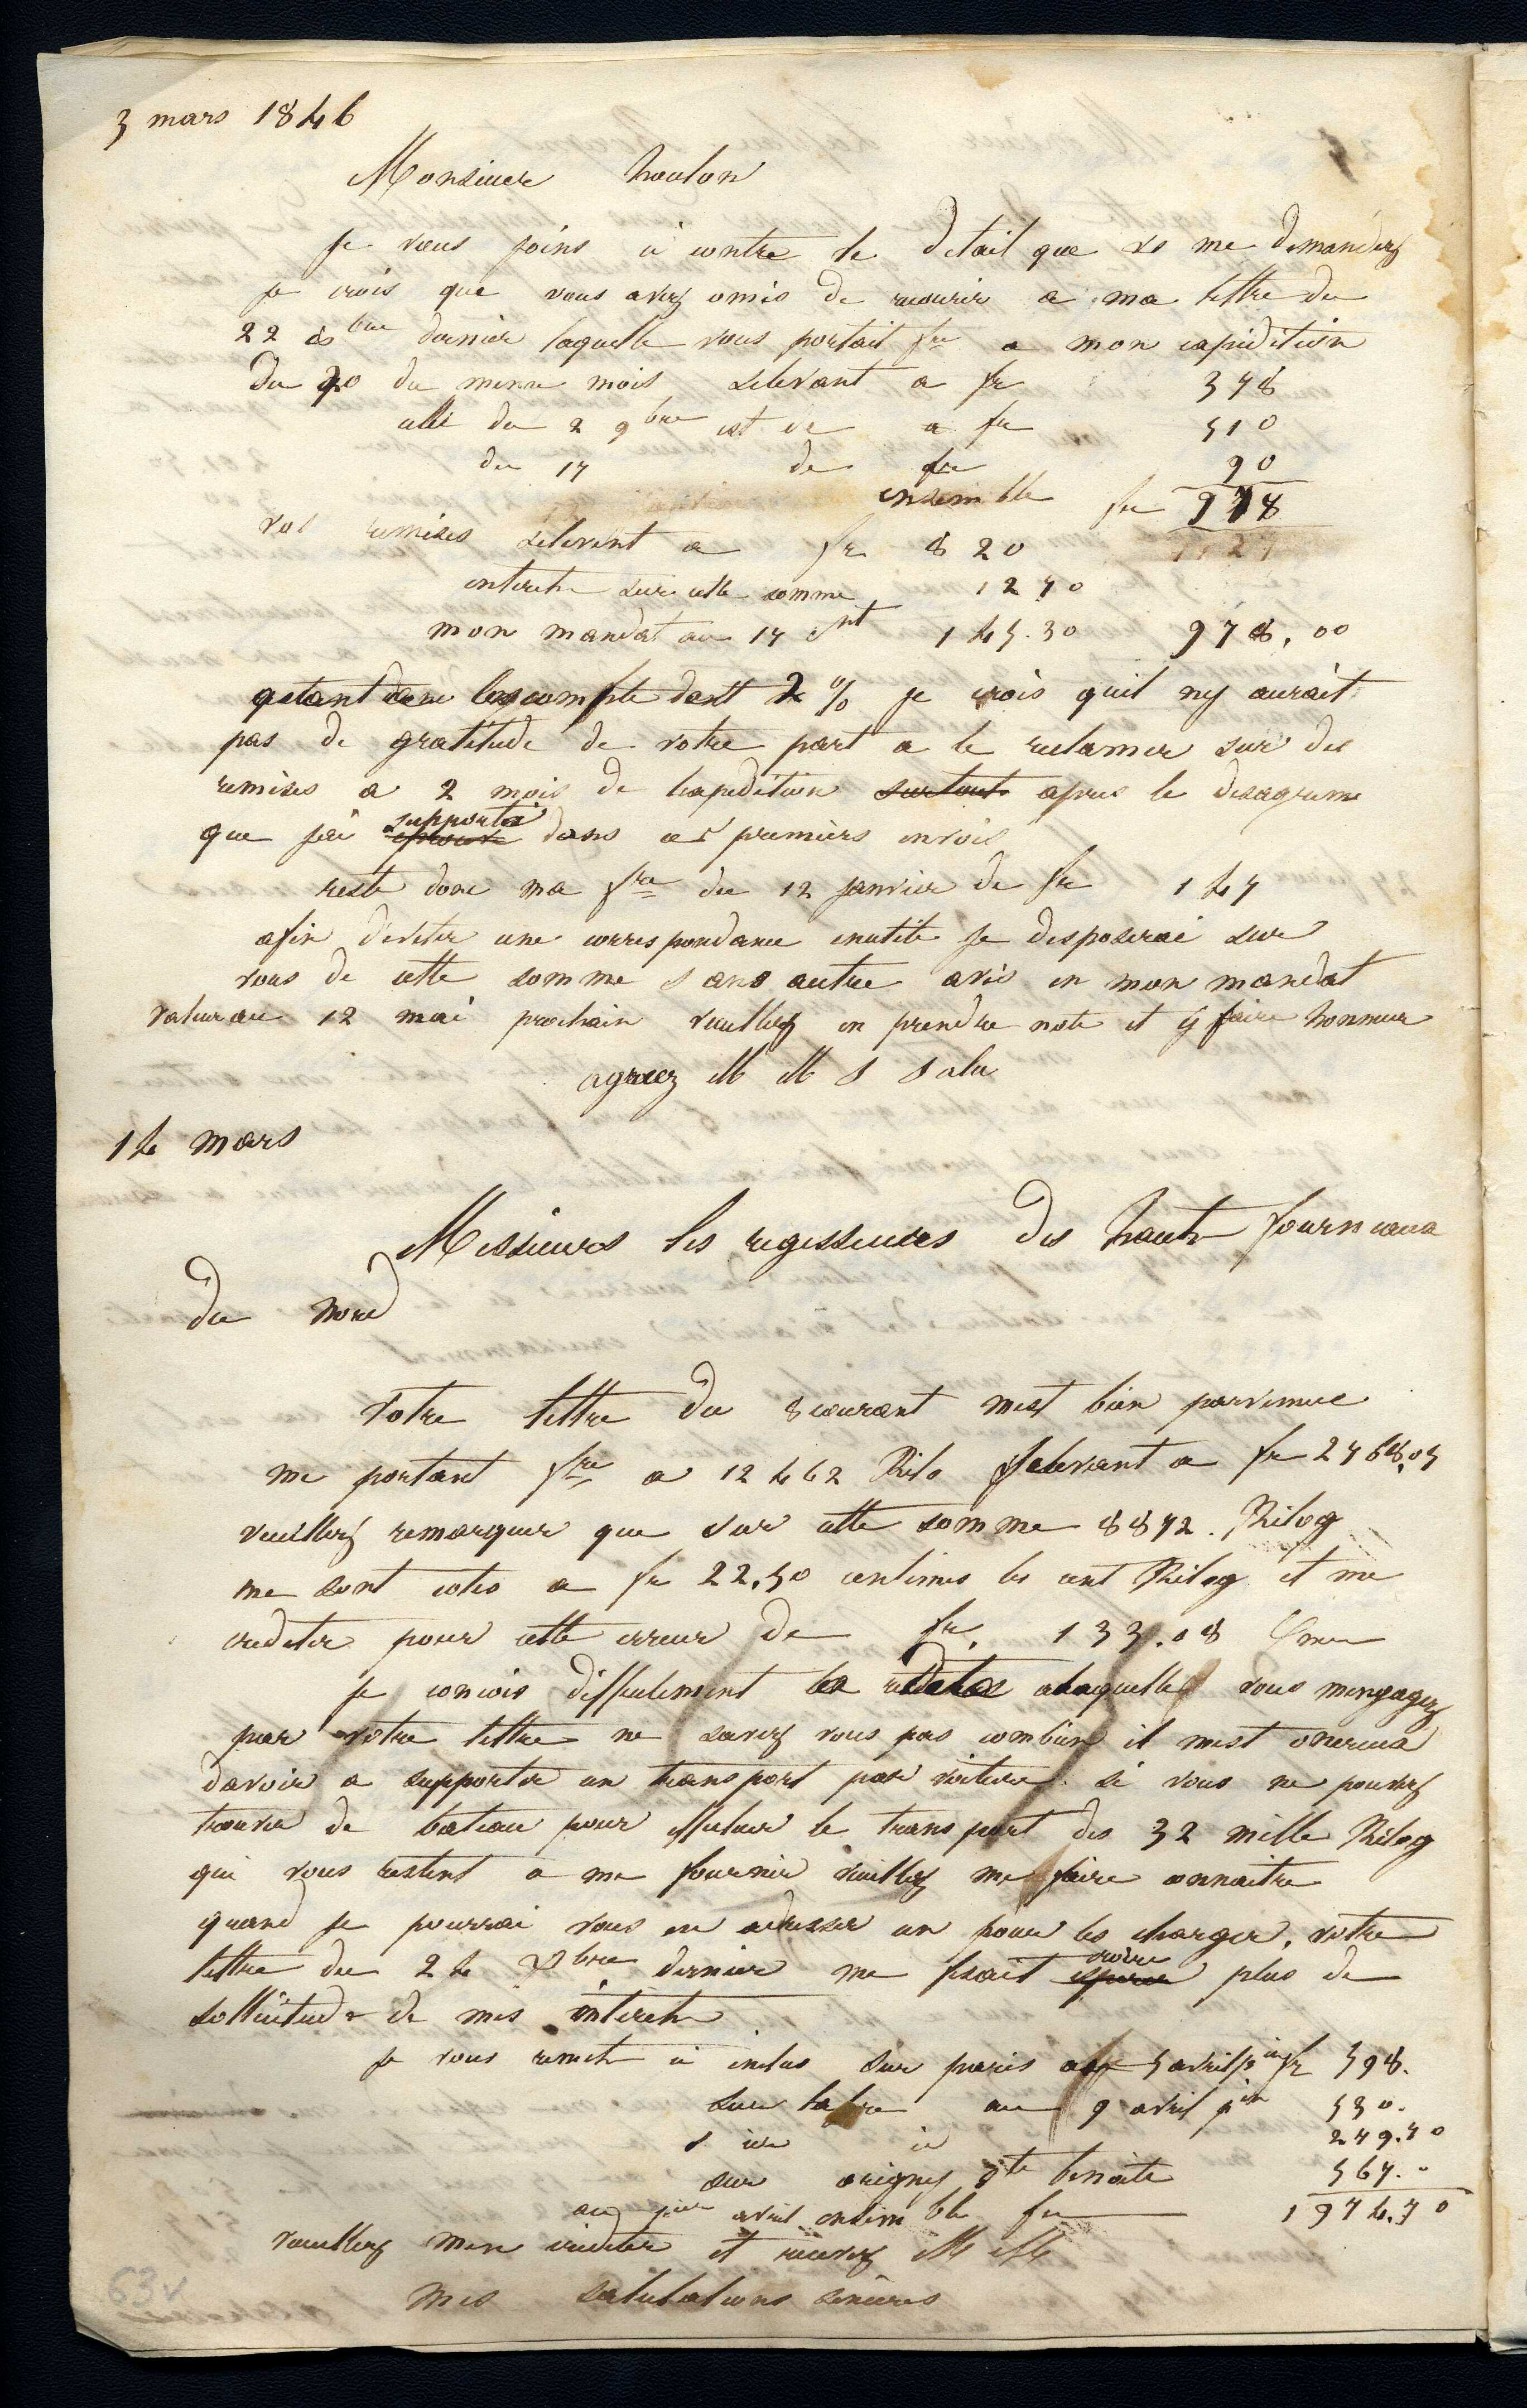 3 mars 1846
Monsieur houlon
je vous joins ci contre le detail que vs me demandez
je crois que vous avez omis de recourir a ma lettre du
22 8bre dernier laquelle vous portait fre a mon expidition
du 20 du meme mois selevant a fr 378
celle du 2 9bre est de a fr 510
du 17 de fr 90
ensemble fr 978
vos remises selevent a fr 820
interets sur cette somme 12 70
mon mandat au 17 ct 145.30 978,00
quant lescompte dont 2 % je crois quil ny aurait
pas de gratitude de votre part a le reclamer sur des
remises a 2 mois de lexpedition surtout apres le desagreme
que jai supporté dans ces premiers envois
reste donc ma fre du 12 janvier de fr 147
afin deviter une correspondance inutile je disposerai sur
vous de cette somme sans autre avis en mon mandat
valeur au 12 mai prochain veuillez en prendre note et y faire honneur
agreez M M s salu
14 mars
Messieurs les regisseures des hauts fourneaux
du nord
votre lettre du 8 courant mest bien parvenue
me portant fre a 12462 Kilo selevant a fr 2768,05
veuillez remarquer que sur cette somme 8872. Kilog
me sont cotes a fr 22,50 centimes les cent Kilog et me
crediter pour cette erreur de fr. 133.08
je concois difficilement la alaquelle vous mengagez
par votre lettre ne savez vous pas combien il mest onereux
davoir a supporter un transport par voiture. si vous ne pouvez
trouver de bateau pour effectuer le transport des 32 mille Kilog
qui vous restent a me fournir veuillez me faire connaitre
quand je pourrai vous en adresser un pour les charger. votre
lettre du 24 bre dernier me fesait croire plus de
sollicitude de mes interets
je vous remets ci inclus sur paris au 5 avril pin fr 598.
sur au 9 avril pin 530.
s id id 279.70
sur origny Ste benoite 567.-
au avril ensemble fr 1974.70
veuillez men crediter et recevez MM
mes salutations sinceres
63v